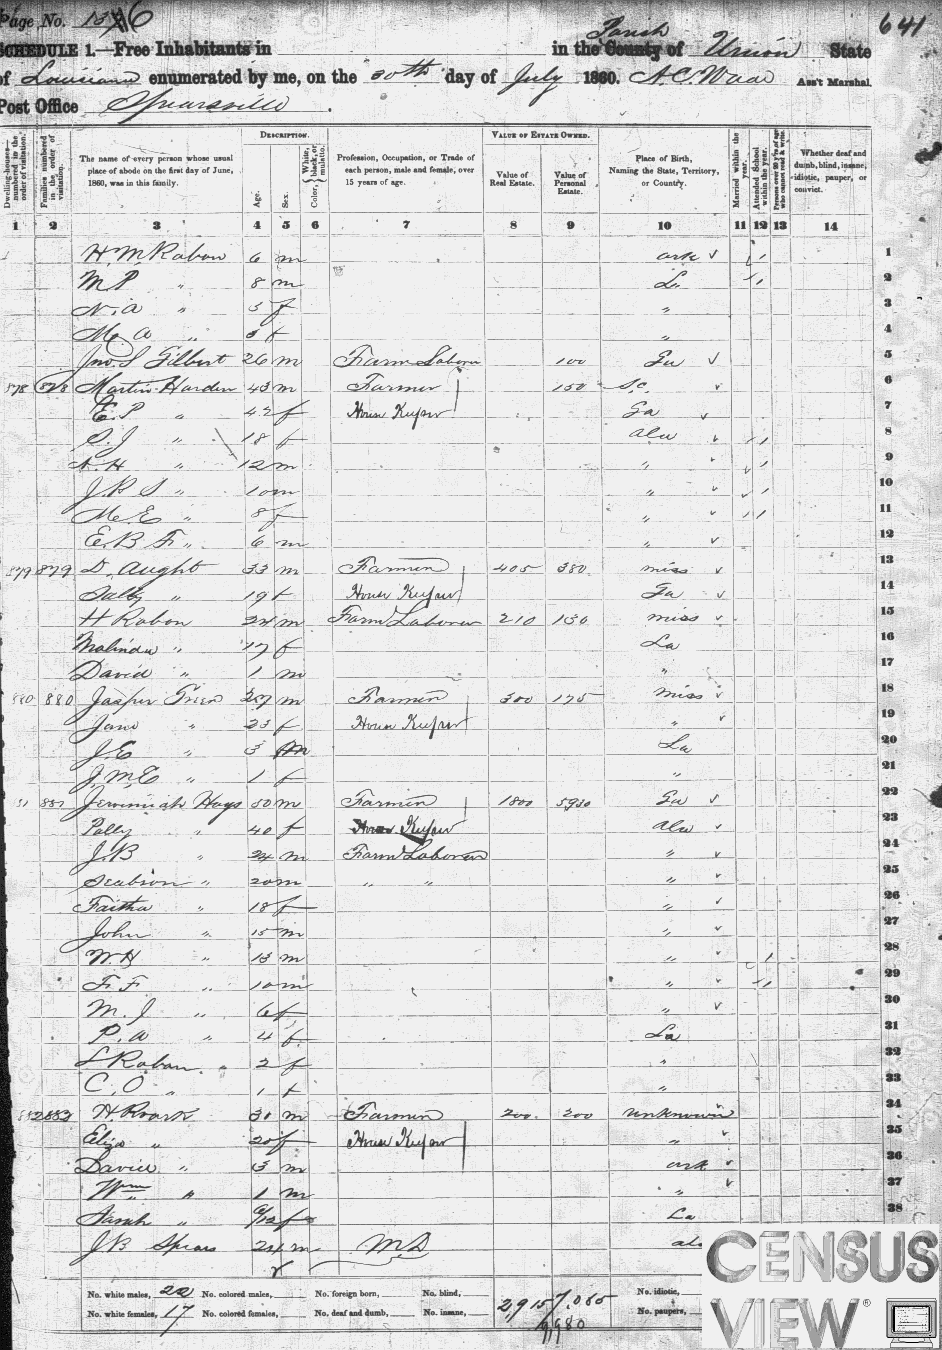 Page No. 136 641
SCHEDULE 1.—Free Inhabitants in in the County Parish of Union State
of Louisiana enumerated by me, on the 30th day of July 1860. A.C. Wade Ass't Marshal.
Post Office Spearsville.
Dwelling-houses—numbered in the order of visitation.
Families numbered in the order of visitation.
The name of every person whose usual place of abode on the first day of June, 1860, was in this family.
DESCRIPTION.
Age.
Sex.
Color, White, black, or mulatto.
Profession, Occupation, or Trade of each person, male and female, over 15 years of age.
VALUE OF ESTATE OWNED.
Value of Real Estate.
Value of Personal Estate.
Place of Birth, Naming the State, Territory, or Country.
Married within the year.
Attended School within the year.
Persons over 20 y'rs of age who cannot read & write.
Whether deaf and dumb, blind, insane, idiotic, pauper, or convict.
1 2 3 4 5 6 7 8 9 10 11 12 13 14
H. M. Rabon 6 m ark 1
M P " 8 m La 2
N. a " 5 f " 3
M a " f " 4
Jno. S Gilbert 26 m Farm Laborer 100 Ga 5
878 878 Martin Harden 43 m Farmer 150 S.C. 6
E. P " 42 f House Keeper Ga 7
S. J " 18 f ala 8
" 12 m " 9
J. B S " 10 m " 10
M. E " 8 f " 11
E. B F. " 6 m " 12
879 879 D. Aught 33 m Farmer 405 380 miss 13
Sally " 19 f House Keeper Ga 14
H Rabon 24 m Farm Laborer 210 130 miss 15
Malinda " 17 f La 16
David " 1 m " 17
880 880 Jasper 27 m Farmer 300 175 miss 18
Jane " 23 f House Keeper " 19
J. E " 3 m La 20
J. M. E " 1 f " 21
881 Jeremiah Hays 50 m Farmer 1800 5930 Ga 22
Polly " 40 f House Keeper ala 23
J. B " 24 m Farm Laborer " 24
" 20 m " " " 25
Faitha " 18 f " 26
John " 15 m " 27
W. H " 13 m " 28
F. F " 10 m " 29
M. J " 6 f " 30
P. a " 4 f La 31
S Rabon 2 f " 32
C. O " 1 f " 33
882 882 H Roark 31 m Farmer 200 200 unknown 34
Eliza " 20 f House Keeper " 35
David " 3 m ark 36
Wm " 1 m " 37
Sarah " 6/12 f La 38
J B Spears 24 m M D ala
No. white males, 22 No. colored males, No. foreign born, No. blind, No. idiotic,
No. white females, 17 No. colored females, No. deaf and dumb, No. insane, No. paupers,
2915 7.065
9,980
CENSUS
VIEW®